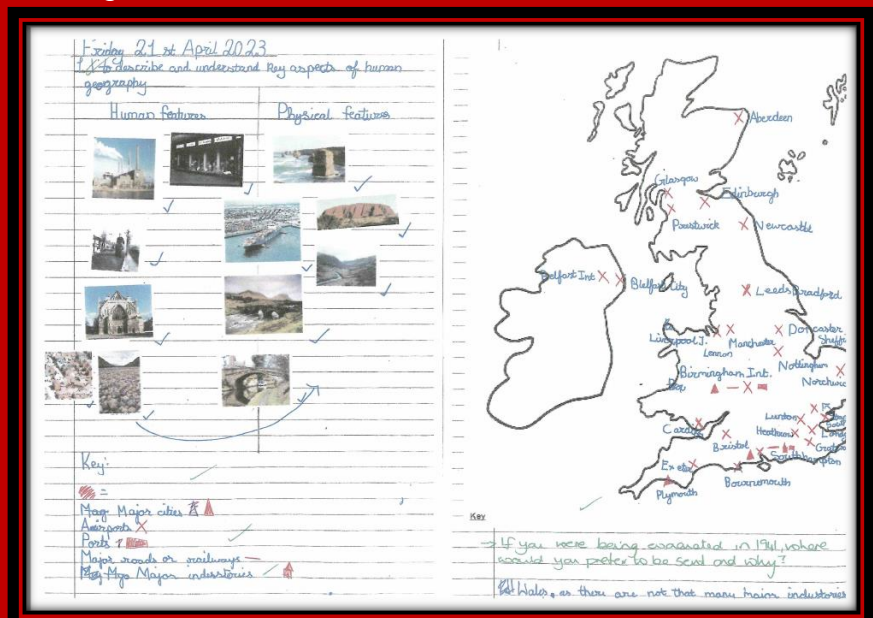 Friday 21 st April 2023
L.I. to describe and understand key aspects of human
geography
Human features
Physical features
Key:
=
Major cities
Airports
Ports
Major roads or railways
Major indusstories
Aberdeen
Glasgow
Edinburgh
Prestwick
Newcastle
Belfast Int
Bielfast City
Leeds Bradford
Liverpool J.
Lennon
Manchester
Doncaster
Sheff
Nottingham
Birmingham Int.
Norchwic
Luxton
Cardiff
Heathrow
Lond
Gratw
Bristol
Southhampton
Exeter
Bournemouth
Plymouth
Key
→ If you were being evacuated in 1941, where
would you prefer to be send and why?
Wales, as there are not that many main industories